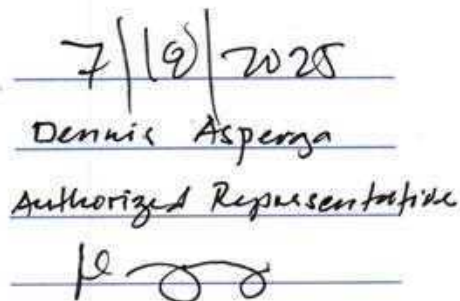 7/18/2025
Dennis Asperga
Authorized Representative